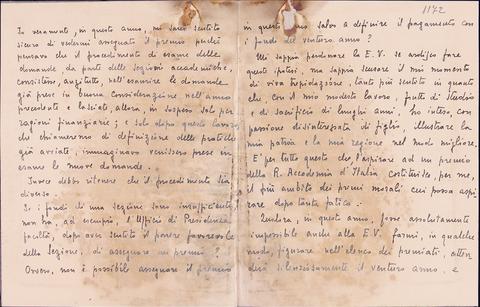 Io veramente, in questo anno, mi sarei sentito
sicuro di vedermi assegnato il premio perché
pensavo che il procedimento di esame delle
domande da parte delle sezioni accademiche,
consistesse, anzitutto, nell'esaurire le domande
già prese in buona considerazione nell'anno
precedente e lasciate, allora, in sospeso sol per
ragioni finanziarie; e solo dopo questo lavoro
che chiameremo di definizione delle pratiche
già avviate, immaginavo venissero prese in
esame le nuove domande.
Invece debbo ritenere che il procedimento sia
diverso.
Se i fondi di una sezione sono insufficienti,
non ha, ad esempio, l'Ufficio di Presidenza
facoltà, dopo aver sentito il parere favorevole
della Sezione, di assegnare un premio?
Ovvero, non è possibile assegnare il premio
1172
in questo anno salvo a definire il pagamento con
i fondi del venturo anno?
Mi sappia perdonare la E.V. se ardisco fare
queste ipotesi, ma sappia scusare il mio momento
di viva trepidazione, tanto più sentita in quanto
che, con il mio modesto lavoro, frutto di studio
e di sacrificio di lunghi anni, ho inteso, con
passione disinteressata di figlio, illustrare la
mia patria e la mia regione nel modo migliore.
E' per tutto questo che l'aspirare ad un premio
della R. Accademia d'Italia costituisce, per me,
il più ambito dei premi morali cui possa aspi-
rare dopo tanta fatica.
Qualora, in questo anno, fosse assolutamente
impossibile anche alla E.V. farmi, in qualche
modo, figurare nell'elenco dei premiati, atten-
derò silenziosamente il venturo anno, e